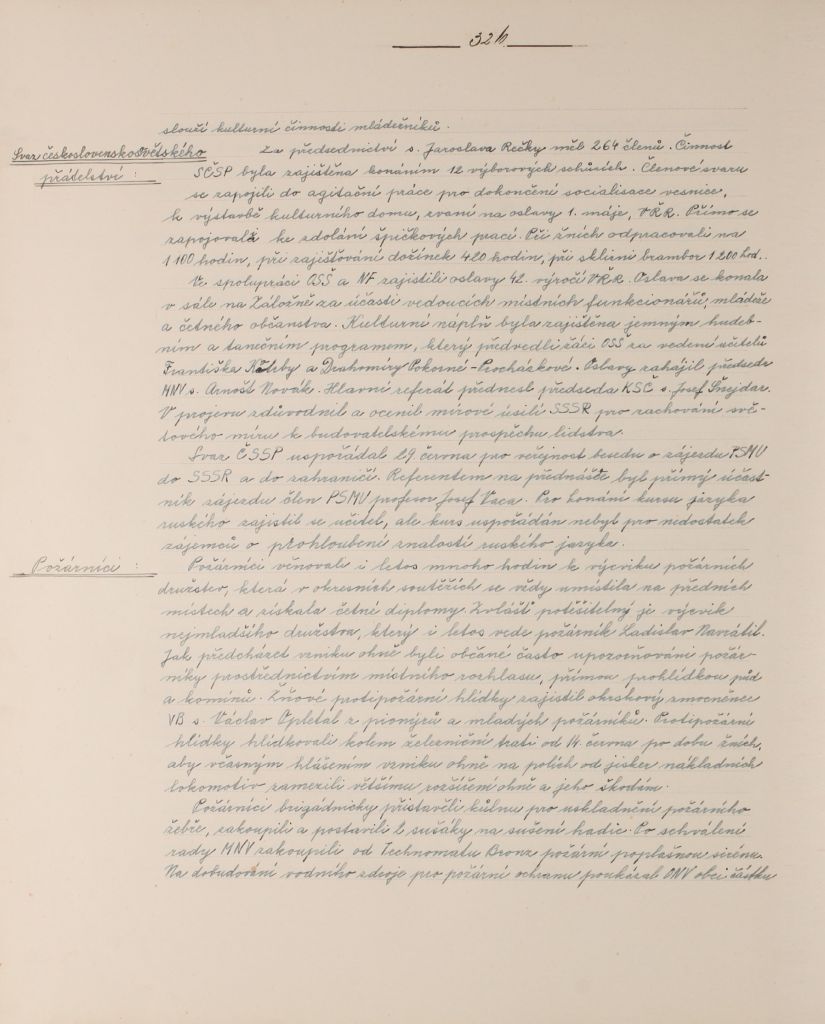 32b
slouží kulturní činnosti mládežníků.
Svaz československosovětského
přátelství:
Za předsednictví s. Jaroslava Rečky měl 264 členů. Činnost
SČSP byla zajištěna konáním 12 výborových schůzích. Členové svazu
se zapojili do agitační práce pro dokončení socialisace vesnice,
k výstavbě kulturního domu, zvaní na oslavy 1. máje, VŘR. Přímo se
zapojovali ke zdolání špičkových prací. Při žních odpracovali na
1100 hodin, při zajišťování dožínek 420 hodin, při sklizni brambor 1200 hod..
Ve spolupráci OSŠ a NF zajistili oslavy 42. výročí VŘR. Oslava se konala
v sále na Záložně za účasti vedoucích místních funkcionářů, mládeže
a četného občanstva. Kulturní náplň byla zajištěna jemným hudeb-
ním a tanečním programem, který předvedli žáci OSŠ za vedení učitelů
Františka a Drahomíry Pokorné-Procházkové. Oslavy zahájil předseda
MNV s. Arnošt Novák. Hlavní referát přednesl předseda KSČ s. Josef Šnejdar.
V projevu zdůvodnil a ocenil mírové úsilí SSSR pro zachování svě-
tového míru k budovatelskému prospěchu lidstva.
Svaz ČSSP uspořádal 29. června pro veřejnost besedu o zájezdu PSMU
do SSSR a do zahraničí. Referentem na přednášce byl přímý účast-
ník zájezdu člen PSMU profesor Josef Vaca. Pro konání kursu jazyka
ruského zajistil se učitel, ale kurs uspořádán nebyl pro nedostatek
zájemců o prohloubení znalostí ruského jazyka.
Požárníci:
Požárníci věnovali i letos mnoho hodin k výcviku požárních
družstev, která v okresních soutěžích se vždy umístila na předních
místech a získala četné diplomy. Zvlášť potěšitelný je výcvik
nejmladšího družstva, který i letos vede požárník Ladislav Navrátil.
Jak předcházet vzniku ohně byli občané často upozorňováni požár-
níky prostřednictvím místního rozhlasu, přímou prohlídkou půd
a komínů. Žňové protipožární hlídky zajistil okrskový zmocněnec
VB s. Václav Opletal z pionýrů a mladých požárníků. Protipožární
hlídky hlídkovali kolem železniční trati od 14. června po dobu žních,
aby včasným hlášením vzniku ohně na polích od jisker nákladních
lokomotiv zamezili většímu rozšíření ohně a jeho škodám.
Požárníci brigádnicky přistavěli kůlnu pro uskladnění požárního
žebře, zakoupili a postavili sušáky na sušení hadic. Po schválení
rady MNV zakoupili od Technomatu Bronz požární poplašnou sirénu.
Na dobudování vodního zdroje pro požární ochranu poukázal ONV obci částku